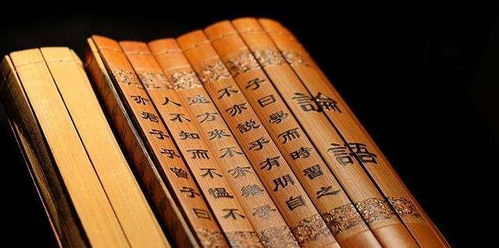 論語
子曰學而時習之
不亦說乎有朋自
遠方來不亦樂乎
人不知而不慍不
亦君子乎子曰